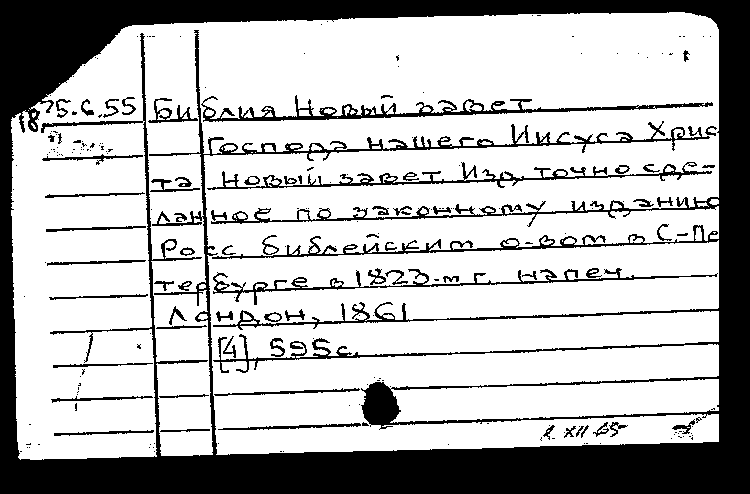 18.75.6.55 Библия Новый завет.
Господа нашего Иисуса Хрис
та Новый завет. Изд. точно сде-
ланное по законному изданию
Росс. библейским о-вом в С.-Пе
тербурге в 1823-м г. напеч.
Лондон, 1861
[4], 595с.
2 XII 65